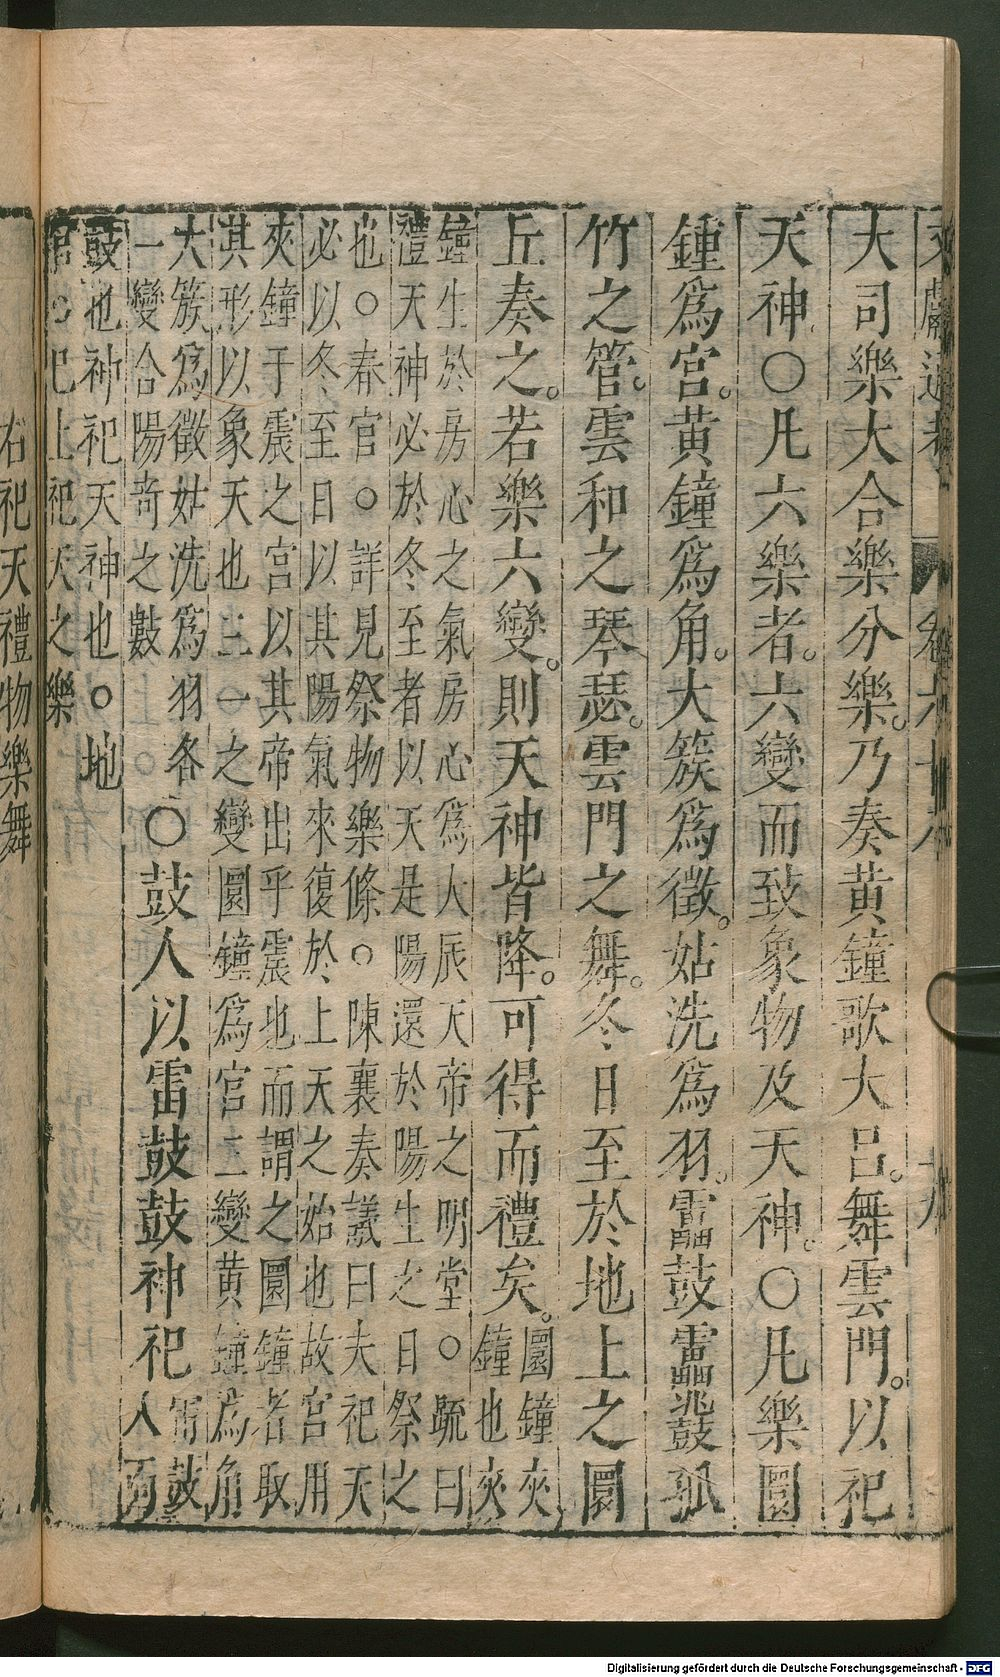 文獻通考 卷六十八 十九
大司樂大合樂分樂。乃奏黃鐘歌大呂。舞雲門。以祀
天神○凡六樂者。六變而致象物及天神。○凡樂圜
鍾爲宮。黃鐘爲角。大簇爲徵。姑洗爲羽。靁鼓靁鼗孤
竹之管。雲和之琴瑟。雲門之舞。冬日至於地上之圜
丘奏之。若樂六變。則天神皆降。可得而禮矣。圜鐘夾
鐘也夾
鐘生於房心之氣房心爲大辰天帝之明堂○疏曰
禮天神必於冬至者以天是陽還於陽生之日祭之
也○春官○詳見祭物樂條○陳襄奏議曰夫祀天
必以冬至日以其陽氣來復於上天之始也故宮用
夾鐘于震之宮以其帝出乎震也而謂之圜鐘者取
其形以象天也三一之變圜鐘爲宮三變黃鐘爲角
大簇爲徵姑洗爲羽各
一變合陽奇之數
○鼓人以雷鼓鼓神祀雷鼓
八面
鼓也神祀天神也○地
官○祀上祀天之樂
右祀天禮物樂舞
Digitalisierung gefördert durch die Deutsche Forschungsgemeinschaft - DFG